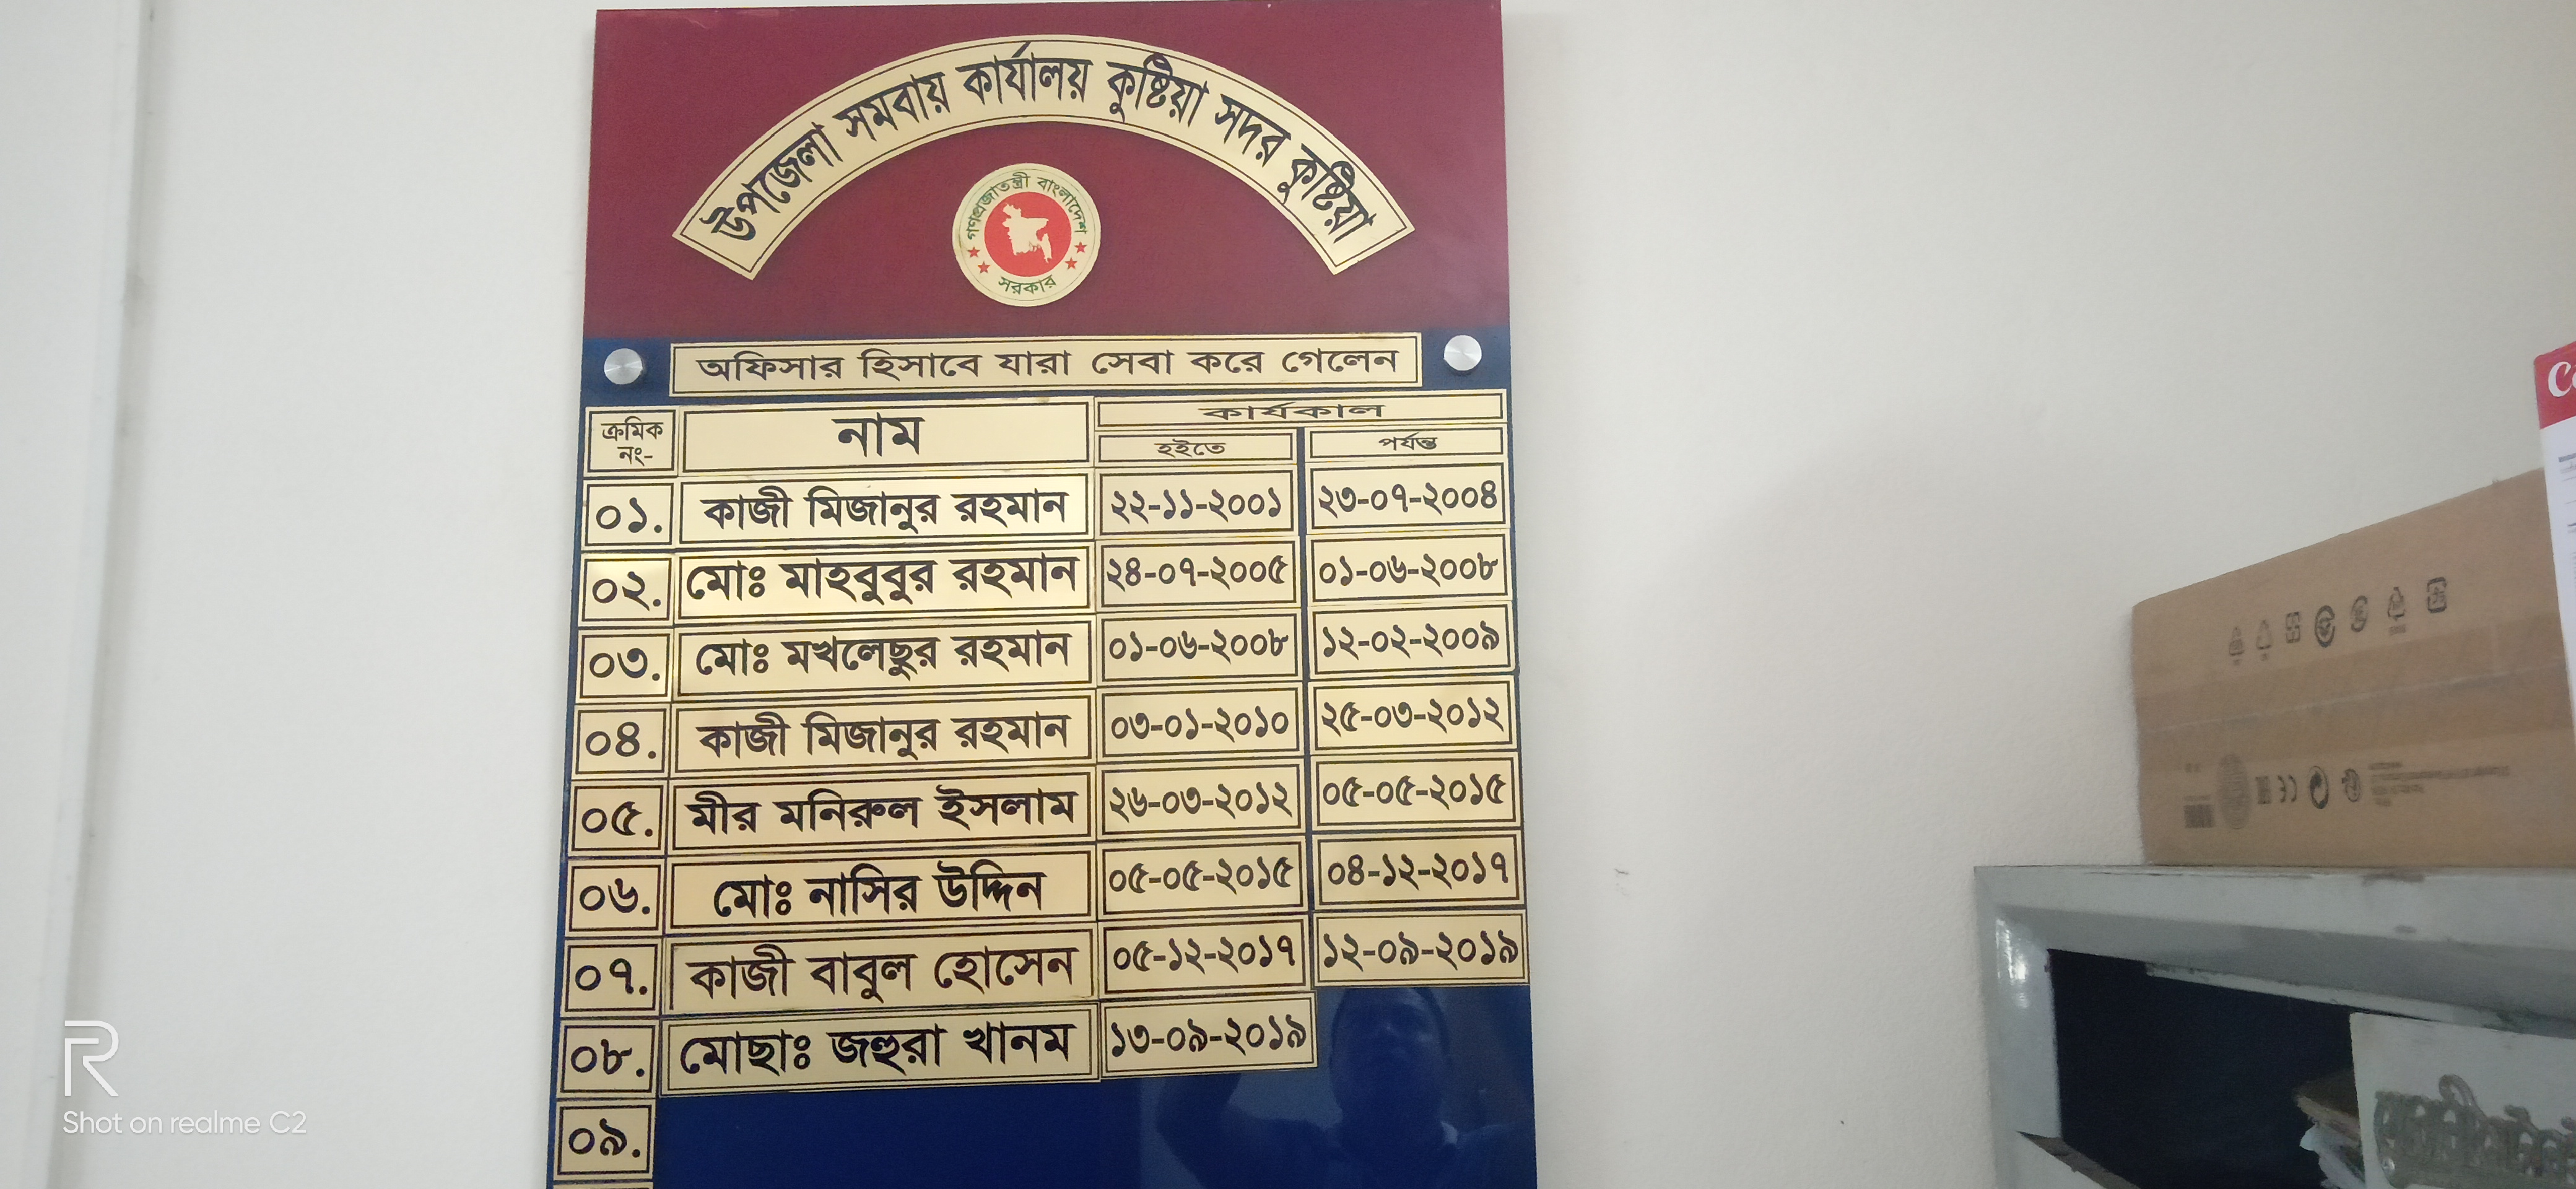 উপজেলা সমবায় কার্যালয় কুষ্টিয়া সদর কুষ্টিয়া
গণপ্রজাতন্ত্রী বাংলাদেশ
সরকার
অফিসার হিসাবে যারা সেবা করে গেলেন
ক্রমিক নং- নাম কার্যকাল
হইতে পর্যন্ত
০১. কাজী মিজানুর রহমান ২২-১১-২০০১ ২৩-০৭-২০০৪
০২. মোঃ মাহবুবুর রহমান ২৪-০৭-২০০৫ ০১-০৬-২০০৮
০৩. মোঃ মখলেছুর রহমান ০১-০৬-২০০৮ ১২-০২-২০০৯
০৪. কাজী মিজানুর রহমান ০৩-০১-২০১০ ২৫-০৩-২০১২
০৫. মীর মনিরুল ইসলাম ২৬-০৩-২০১২ ০৫-০৫-২০১৫
০৬. মোঃ নাসির উদ্দিন ০৫-০৫-২০১৫ ০৪-১২-২০১৭
০৭. কাজী বাবুল হোসেন ০৫-১২-২০১৭ ১২-০৯-২০১৯
০৮. মোছাঃ জহুরা খানম ১৩-০৯-২০১৯
০৯.
Shot on realme C2